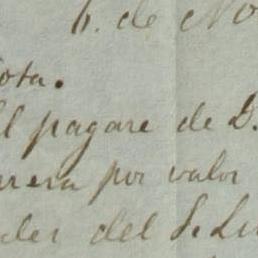 6. de No
ota.
El pagare de D.
rrera por valor
ales del S. Lu